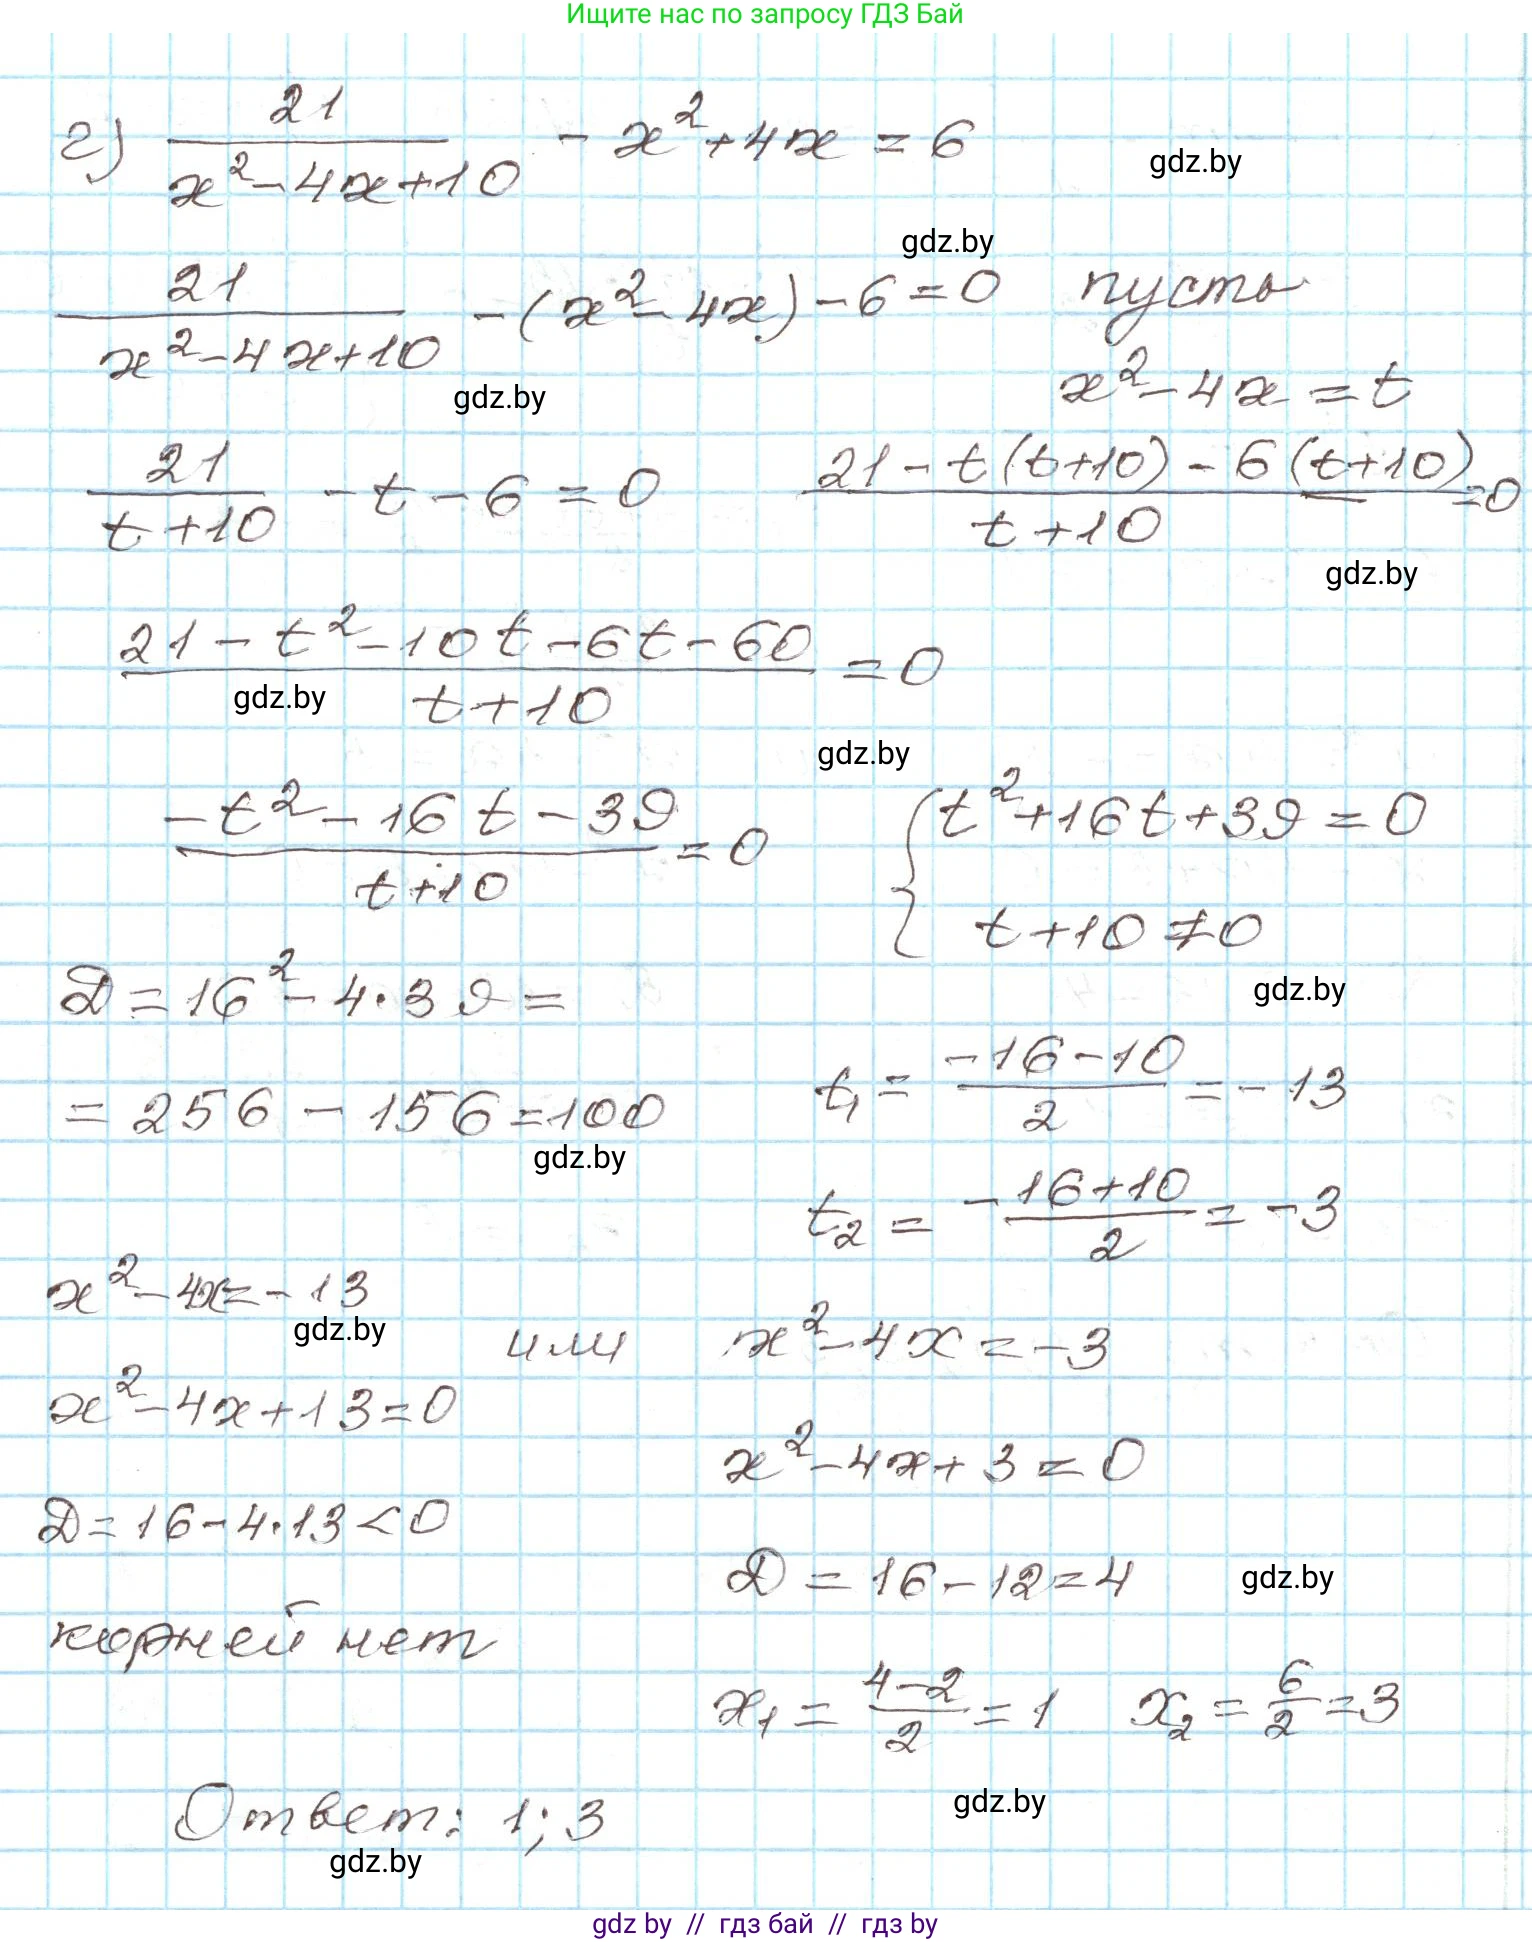 Ищите нас по запросу ГДЗ Бай
г) 21/(x²-4x+10) - x²+4x = 6
gdz.by
gdz.by
21/(x²-4x+10) - (x²-4x) - 6 = 0 пусть
x²-4x = t
gdz.by
21/(t+10) - t - 6 = 0 (21-t(t+10)-6(t+10))/(t+10) = 0
gdz.by
(21-t²-10t-6t-60)/(t+10) = 0
gdz.by
gdz.by
(-t²-16t-39)/(t+10) = 0 { t²+16t+39=0
t+10≠0
gdz.by
D = 16²-4·39 =
= 256-156=100
t₁ = (-16-10)/2 = -13
gdz.by
t₂ = (-16+10)/2 = -3
x²-4x=-13 или x²-4x=-3
gdz.by
x²-4x+13=0
x²-4x+3=0
D=16-4·13<0
D=16-12=4
gdz.by
корней нет
x₁ = (4-2)/2 = 1 x₂ = 6/2 = 3
gdz.by
Ответ: 1; 3
gdz.by
gdz by // гдз бай // гдз by